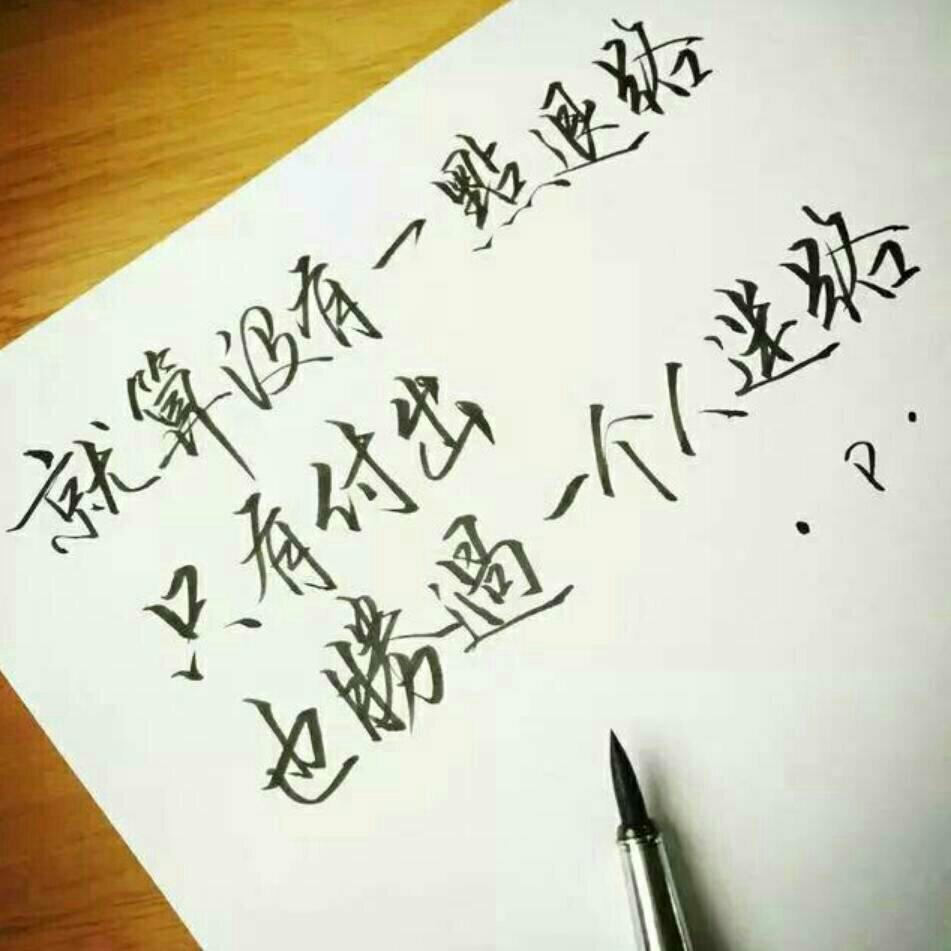 就算没有一點退路
只有付出
也勝過一个人迷路
.P.